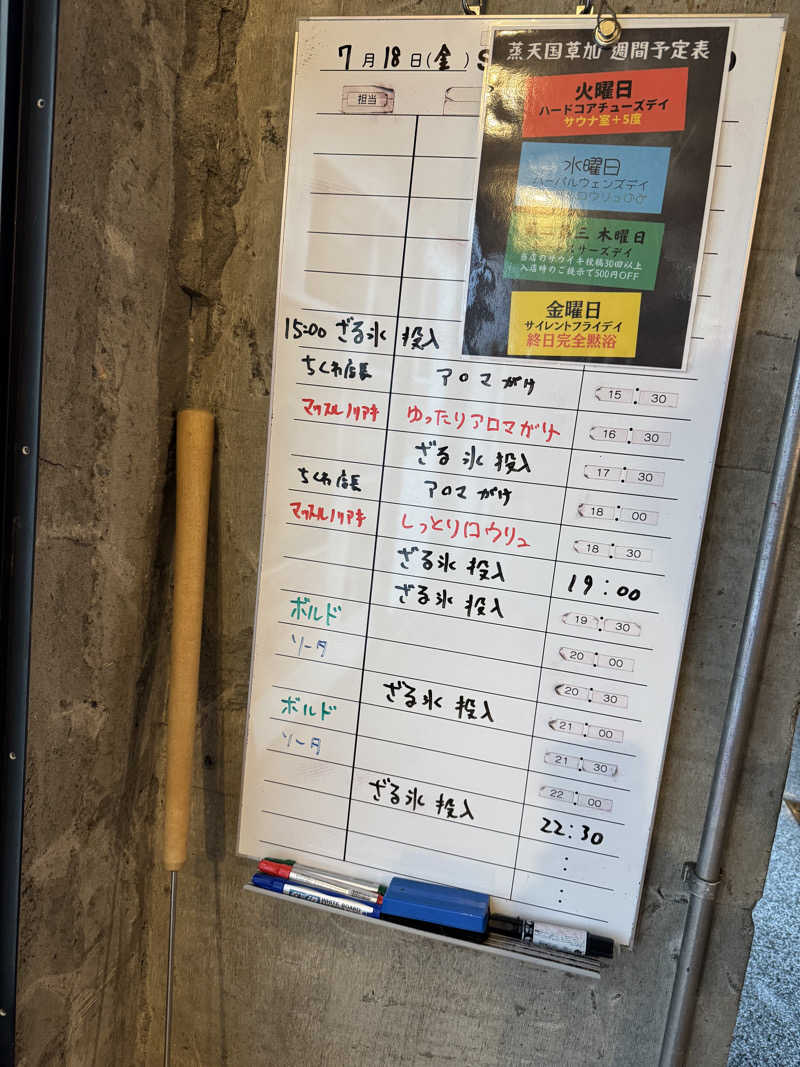 7月18日(金)
担当
蒸天国草加 週間予定表
火曜日
ハードコアチューズデイ
サウナ室+5度
水曜日
ハーバルウェンズデイ
ロウリュ
三 木曜日
サーズデイ
当店のサウイキ投稿30回以上
入店時のご提示で500円OFF
金曜日
サイレントフライデイ
終日完全黙浴
15:00 ざる氷 投入
ちくわ店長 アロマがけ 15:30
マッスルノリアキ ゆったりアロマがけ 16:30
ざる氷 投入 17:30
ちくわ店長 アロマがけ 18:00
マッスルノリアキ しっとりロウリュ 18:30
ざる氷 投入 19:00
ざる氷 投入 19:30
ボルド 20:00
ソータ 20:30
ざる氷 投入 21:00
ボルド 21:30
ソータ 22:00
ざる氷 投入 22:30
:
:
:
WHITE BOARD